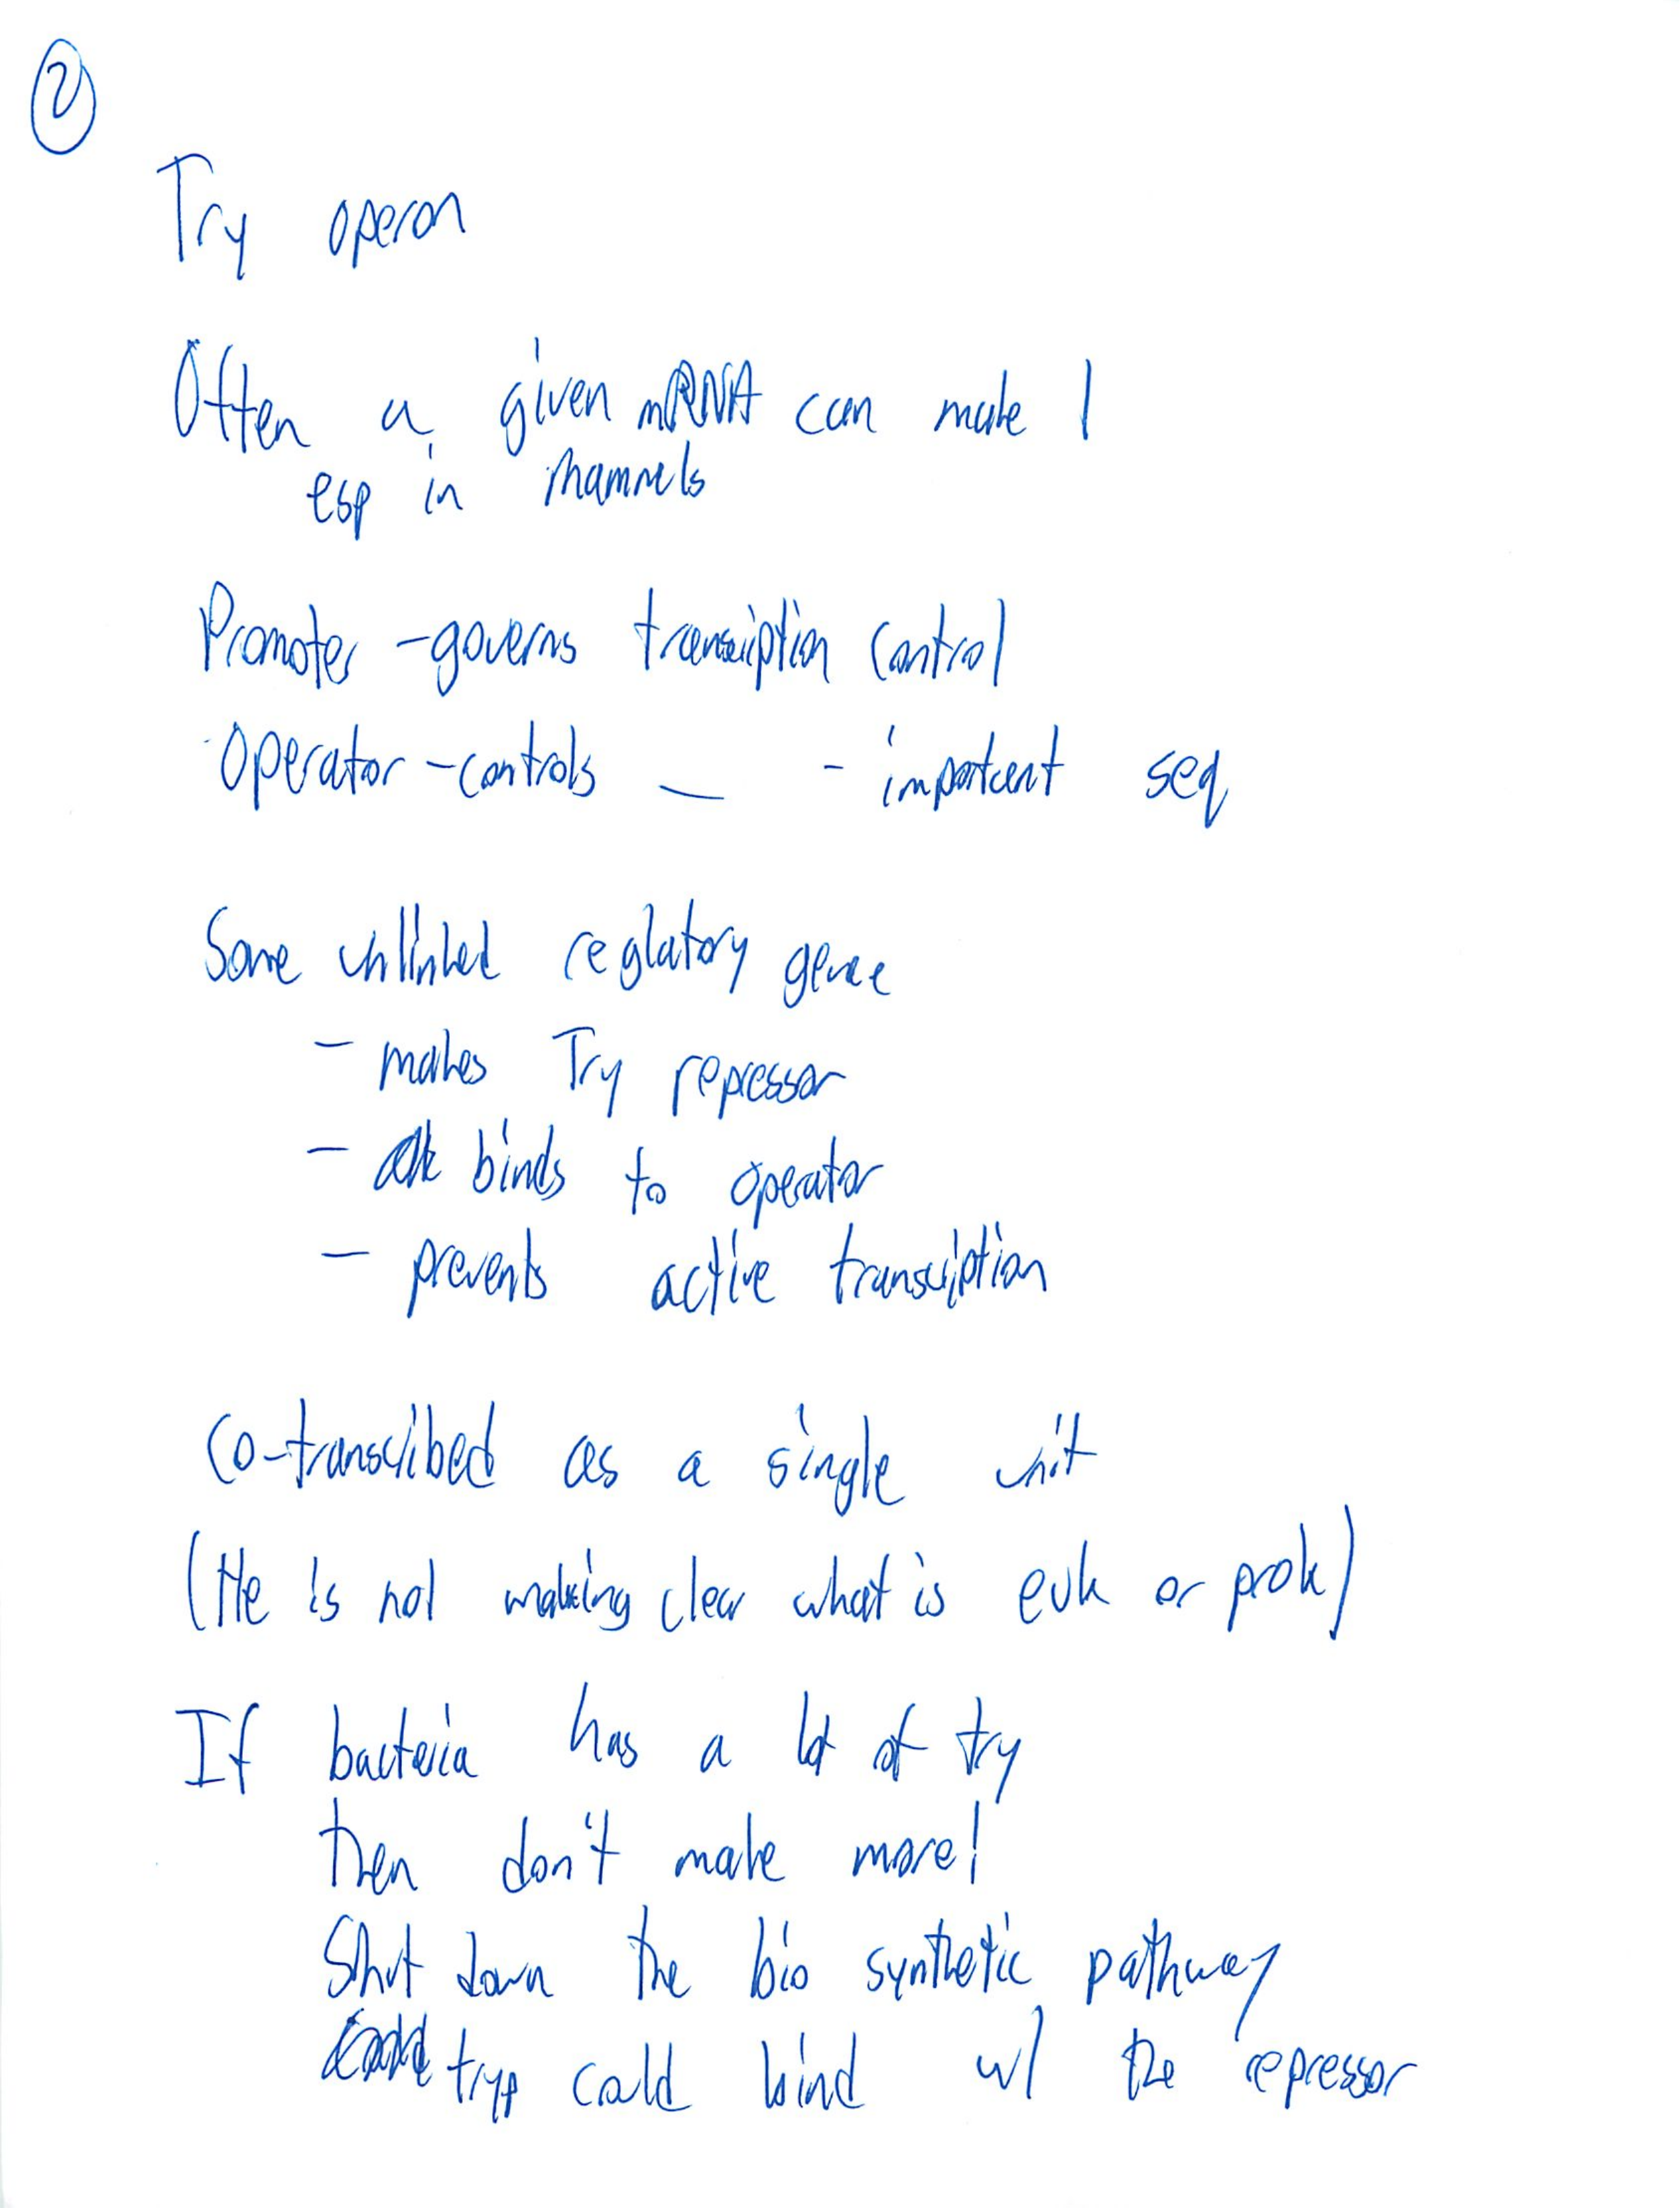 2
Try operon
Often a given mRNA can make 1
esp in mammels
Promoter - governs transcription control
Operator - controls __ - important seq
Some unlinked reglatory gene
- makes Try repressor
- binds to operator
- prevents active transcription
Co-transcribed as a single unit
(He is not making clear what is euk or prok)
If bacteria has a lot of try
then don't make more!
Shut down the bio synthetic pathway
tryp could bind w/ the repressor